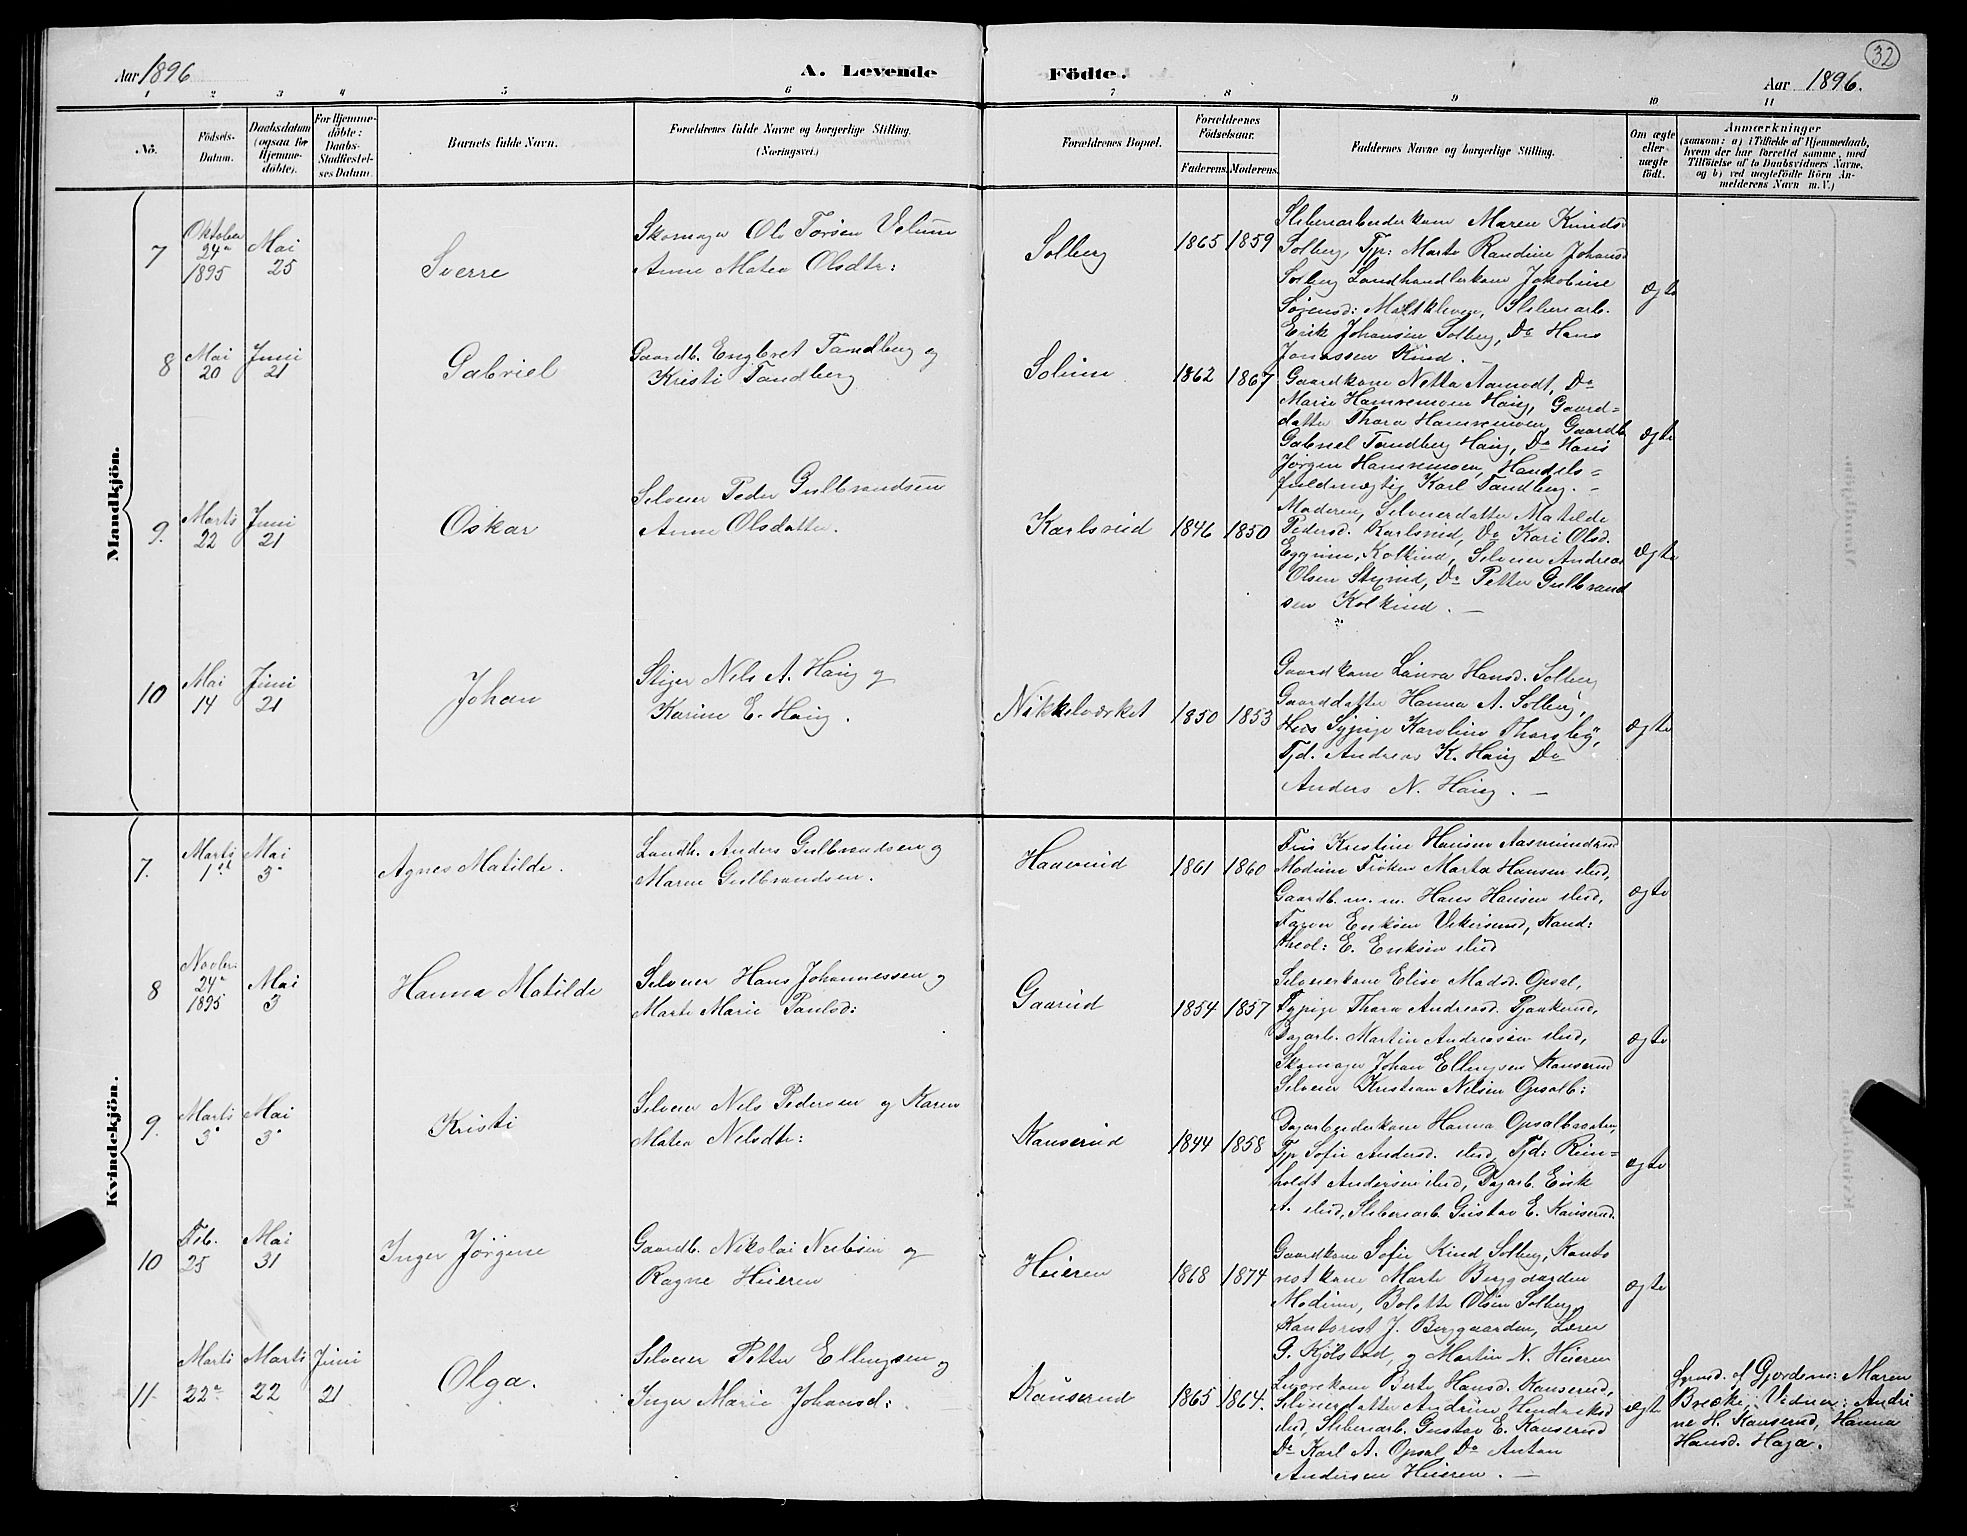 32
Aar 1896
A. Levende
Födte.
Aar 1896.
1 2 3 4 5 6 7 8 9 10 11
No.
Födsels-
Datum.
Daabsdatum
(ogsaa for
Hjemme-
döbte).
For Hjemme-
döbte:
Daabs-
Stadfæstel-
ses Datum.
Barnets fulde Navn.
Forældrenes fulde Navne og borgerlige Stilling.
(Næringsvei.)
Forældrenes Bopæl.
Forældrenes
Födselsaar.
Faderens. Moderens.
Faddernes Navne og borgerlige Stilling.
Om ægte
eller
uægte
födt.
Anmærkninger
(saasom: a) i Tilfælde af Hjemmedaab,
hvem der har forrettet samme, med
Tilföielse af to Daabsvidners Navne,
og b) ved uægtefödte Börn An-
melderens Navn m. V.)
Mandkjön.
7
Oktober
24de
1895
Mai
25
Sverre
Skomager Ole Torsen Velum
Anne Matea Olsdtr:
Solberg
1865 1859
Sliberiarbeiderkone Maren Knuds.
Solberg, Tjp: Marte Randine Johansd.
Solberg Landhandlerkone Jakobine
Sørensd: Sliberiarb.
Erik Johansen Solberg, Do Hans
Jonassen Kind. —
ægte
8
Mai
20
Juni
21
Gabriel
Gaardb. Engbret Tandberg og
Kristi Tandberg
Solum
1862 1867
Gaardkone Netta Aamodt, Do
Marie Hamremoen Haug, Gaard=
datter Thora Hamremoen, Gaardb.
Gabriel Tandberg Haug, Do Hans
Jørgen Hamremoen, Handels=
fuldmægtig Karl Tandberg. —
ægte
9.
Marts
22
Juni
21
Oskar
Selveier Peder Gulbrandsen
Anne Olsdatter.
Karlsrud
1846 1850
Moderen, Selveierdatter Matilde
Pedersd. Karlsrud, Do Kari Olsd.
Kolkind, Selveier Andreas
Olsen Do Petter Gulbrand
sen Kolkind. —
ægte
10
Mai
14
Juni
21
Johan
Stiger Nels A. Haug og
Karine E. Haug.
Nikkelværket
1850 1853
Gaardkone Laura Hansd. Solberg
Gaarddatter Hanna A. Solberg,
Sypige Karoline Thorsby,
Tjd. Andreas K. Haug Do
Anders N. Haug. —
ægte
Kvindekjön.
7.
Marts
1st
Mai
3die
Agnes Matilde.
Landh. Anders Gulbrandsen og
Maren Gulbrandsen.
Haaverud
1861 1860
Fru Kristine Hansen Aasmundrud
Modum Frøken Marta Hansen stsd,
Gaardb. m. m. Hans Hansen stsd,
Farver Eriksen Vikersund, Kand:
theol: E. Eriksen stsd
ægte
8
Novbr:
24de
1895
Mai
3
Hanna Matilde
Selveier Hans Johannessen og
Marte Marie Paulsd:
Gaarud
1854 1857
Selveierkone Elise Madsd. Opsal,
Tjpige Thora Andreasd. Tjaakerud,
Dagarb. Martin Andreasen stsd,
Skomager Johan Ellingsen Kanserud
Selveier Kristian Nilsen Opsalb:
ægte
9.
Marts
3die
Mai
3die
Kristi
Selveier Nels Pedersen og Karen
Matea Nelsdtr:
Kanserud
1844 1858
Dagarbeiderkone Hanna Opsalbraaten,
Tjp Sofie Andersd. stsd, Tjd: Rein=
holdt Andersen stsd, Dagarb. Erik
A. stsd, Sliberiarb. Gustav E. Kanserud.
ægte
10
Feb.
25
Mai
31
Inger Jørgine
Gaardb. Nikolai Neelsen og
Ragne Heieren
Heieren
1868 1874
Gaardkone Sofie Kind Solberg, Kanto
ristkone Marte Berggaarden
Modum, Bolette Olsen Solberg,
Kantorist J. Berggaarden, Lærer
G. Kjölstad, og Martin N. Heieren
ægte
11
Marts
22de
Marts
22
Juni
21
Olga.
Selveier Petter Ellingsen og
Inger Marie Johansd:
Kanserud
1865 1864.
Berte Hansd. Kanserud,
Selveierdatter Andrine Hendriksd
stsd, Sliberiarb. Gustav E. Kanserud
Do Karl A. Opsal Do Anton
Andersen Heieren. —
ægte
af Gjordem: Maren
Brække: Vidner: Andri
ne H. Kanserud, Hanna
Hansd. Haga.